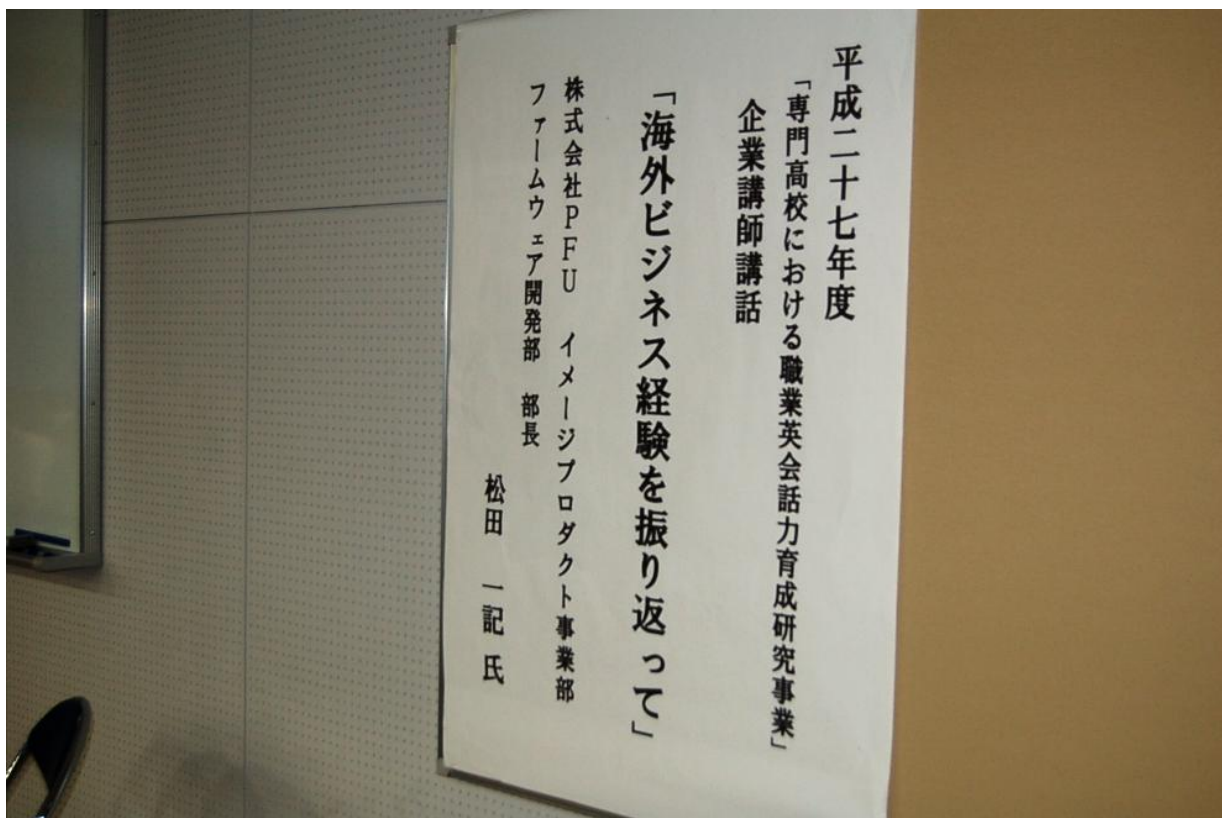 平成二十七年度
「専門高校における職業英会話力育成研究事業」
企業講師講話
「海外ビジネス経験を振り返って」
株式会社PFU　イメージプロダクト事業部
ファームウェア開発部　部長
松田　一記　氏